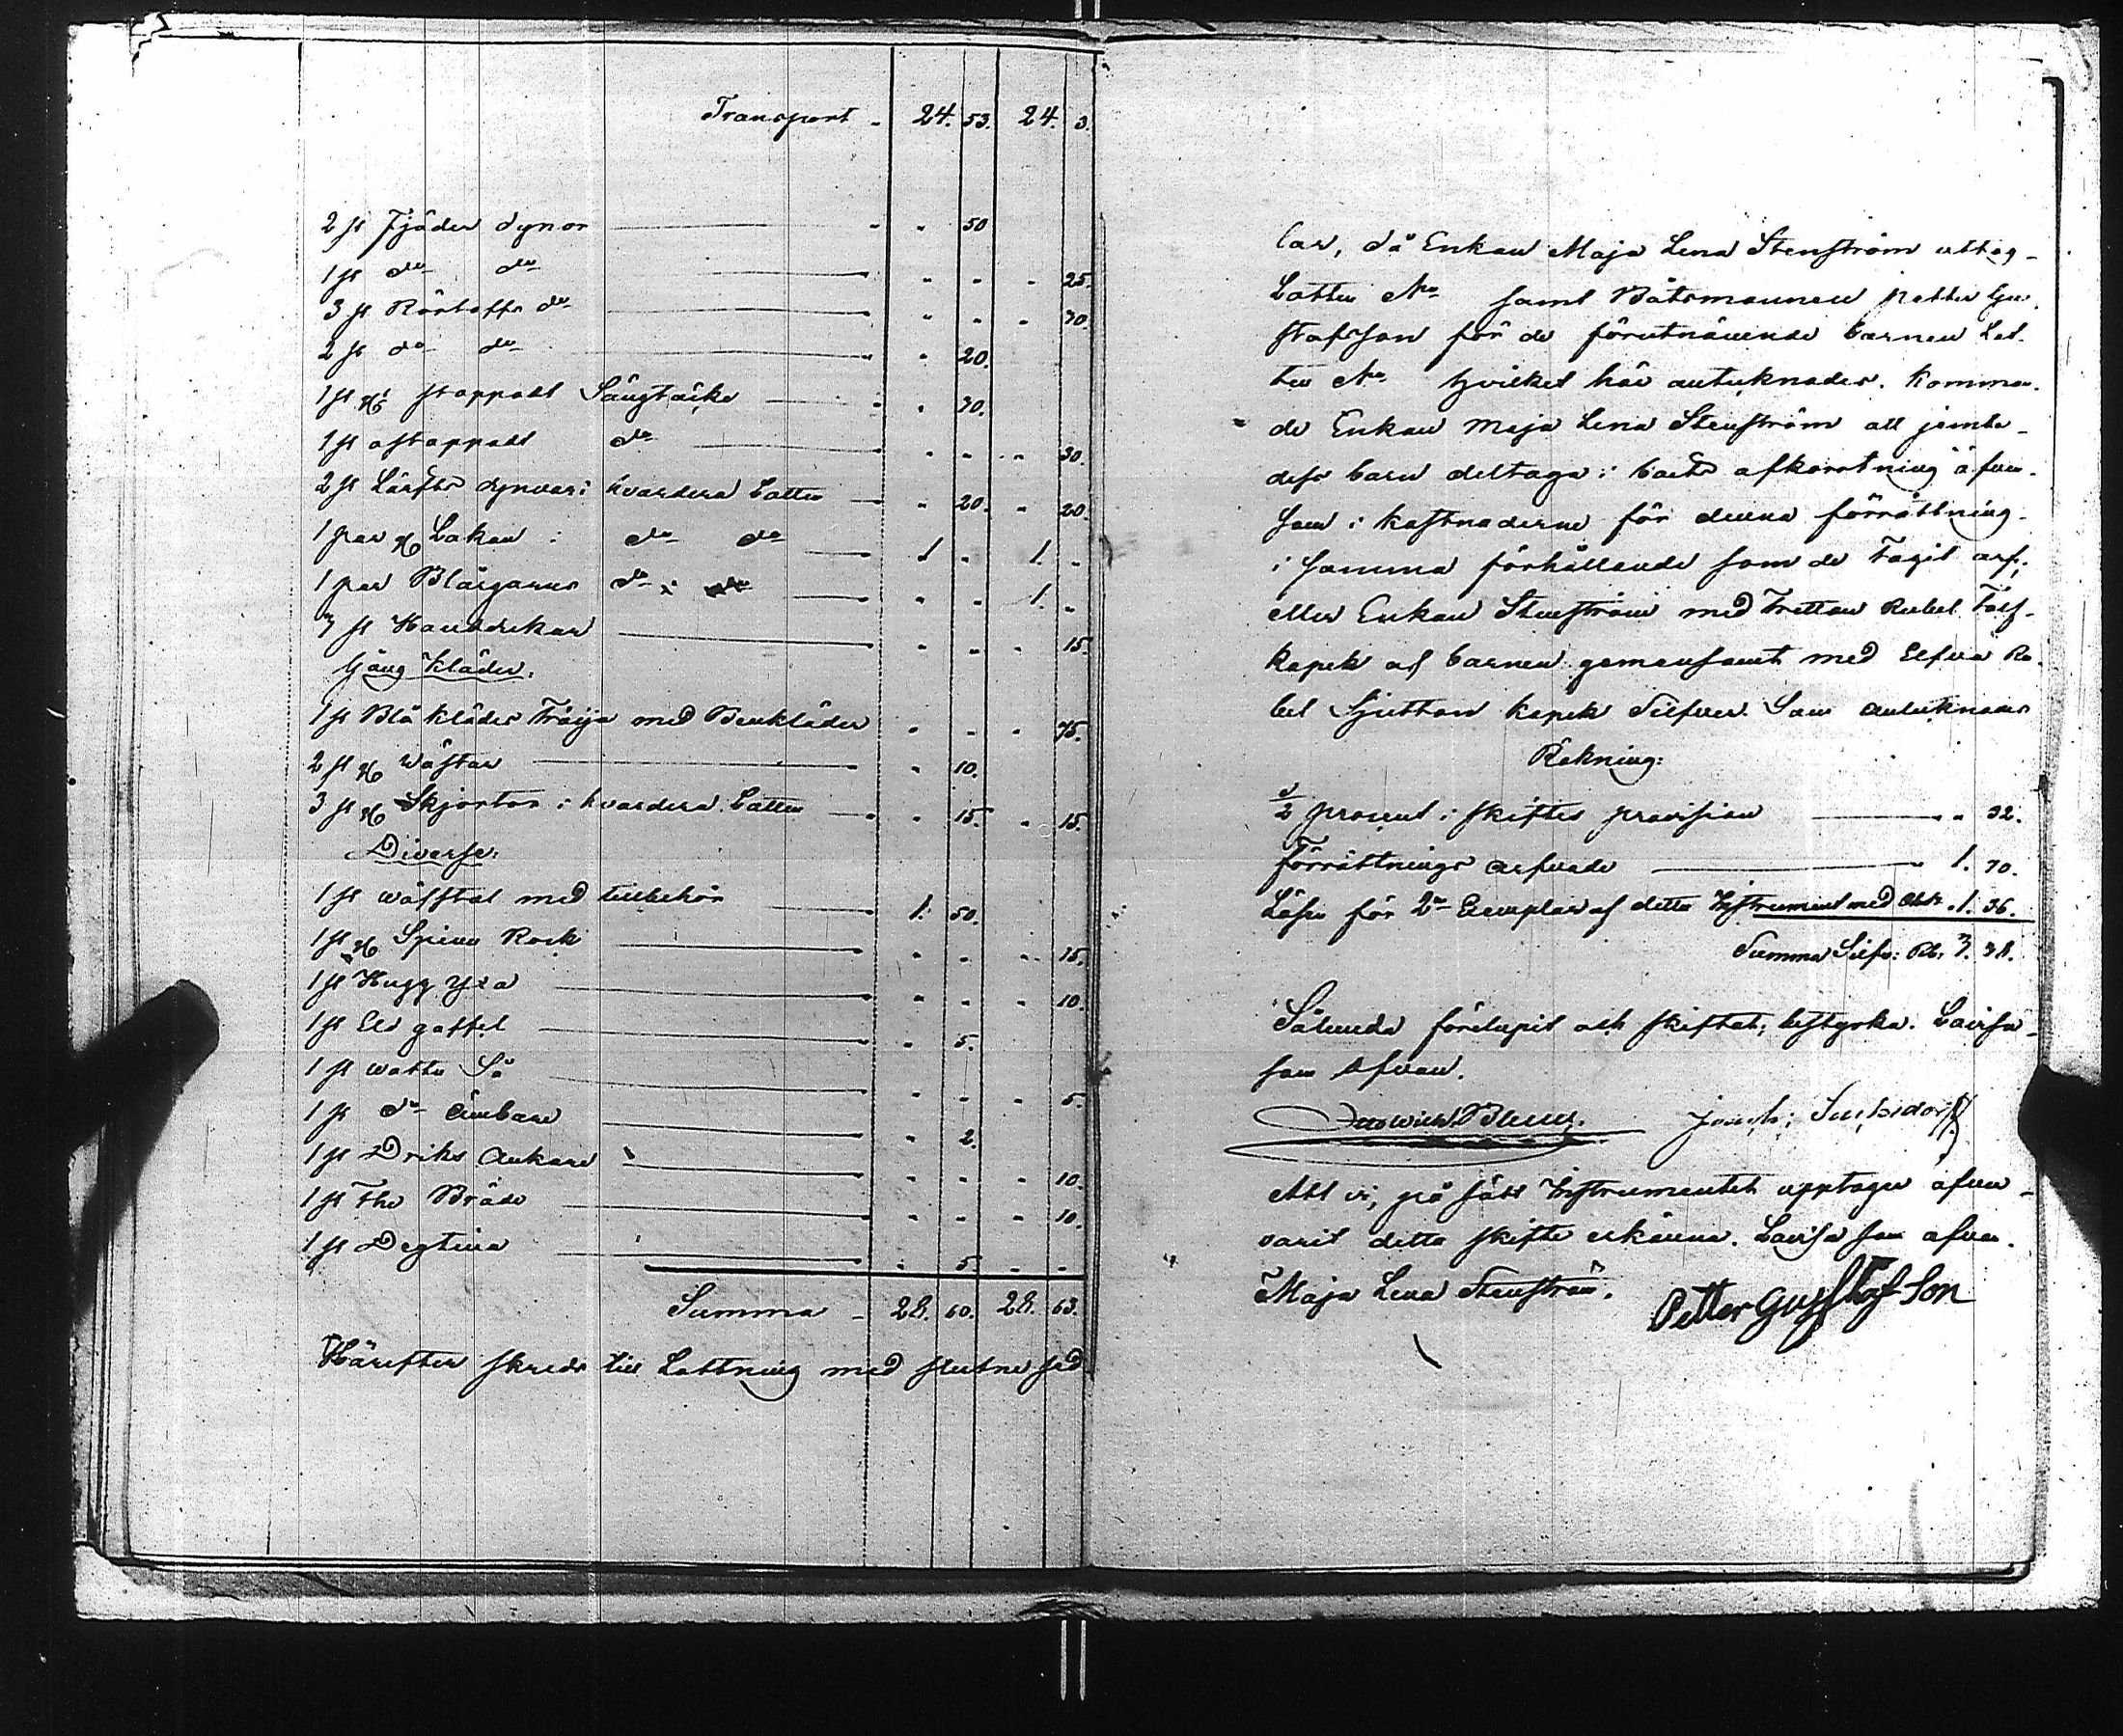 Transport - 24. 53. 24. 3.
2 st Fjäder dynor - - 50
1 st do do - - - 25.
3 st Rörtofts do - - - 30
2 st do do - 20.
1 st stoppadt Sängtäcke - 30.
1 st ostoppadt do - - - 30.
2 st Lärfts dynvar i hvardera Lotten - 20. - 20.
1 par Lakan i do do 1 - 1. -
1 par Blårgarns do i do - - 1. -
3 st Handdukar - - - 15.
Gång kläder.
1 st Blå klädes Tröija med Benkläder - - - 75.
2 st Wästar - 10.
3 st Skjortor i hvardera Lotten - 15. - 15.
Diverse:
1 st wäfstol med tillbehör 1. 50.
1 st Spinn Rock - - - 15.
1 st Hugg Yxa - - - 10
1 st Eld gaffel - 5.
1 st watte Så - - - 5.
1 st do ämbare - 2.
1 st Driks Ankare - - - 10.
1 st The Bräde - - - 10.
1 st Degtina - 5. - -
Summa - 28. 60. 28. 63.
Härefter skreds till Lottning med slutne sed
lar, då Enkan Maja Lena Stenström uttog
Lotten No samt Båtsmannen Petter Gu
stafsson för de förutnämnde barnen Lot
ten No hvilket här antecknades. Komman
de Enkan Maja Lena Stenström att jemte
dess barn deltaga i boets afkortning äfven
som i kostnaderne för denna förrättning
i samma förhållande som de tagit arf;
eller Enkan Stenström med Tretton Rubel Tolf
kopek och barnen gemensamt med Elfva Ru
bel Sjutton kopek Silfver. Som antecknades
Räkning:
1/2 procent i skiftes provision - 32.
Förrättnings arfvode - 1. 70.
Lösen för 2ne Exemplar af detta Instrument med 1. 36.
Summa Silfv: Rb. 3. 38.
Sålunda förelupit och skiftat; bestyrka. Lovisa
som Ofvan.
Att vi, på sätt Instrumentet upptager åfven
varit detta skifte erkänna. Lovisa som ofvan.
Maja Lena Stenström. Petter Gustafson